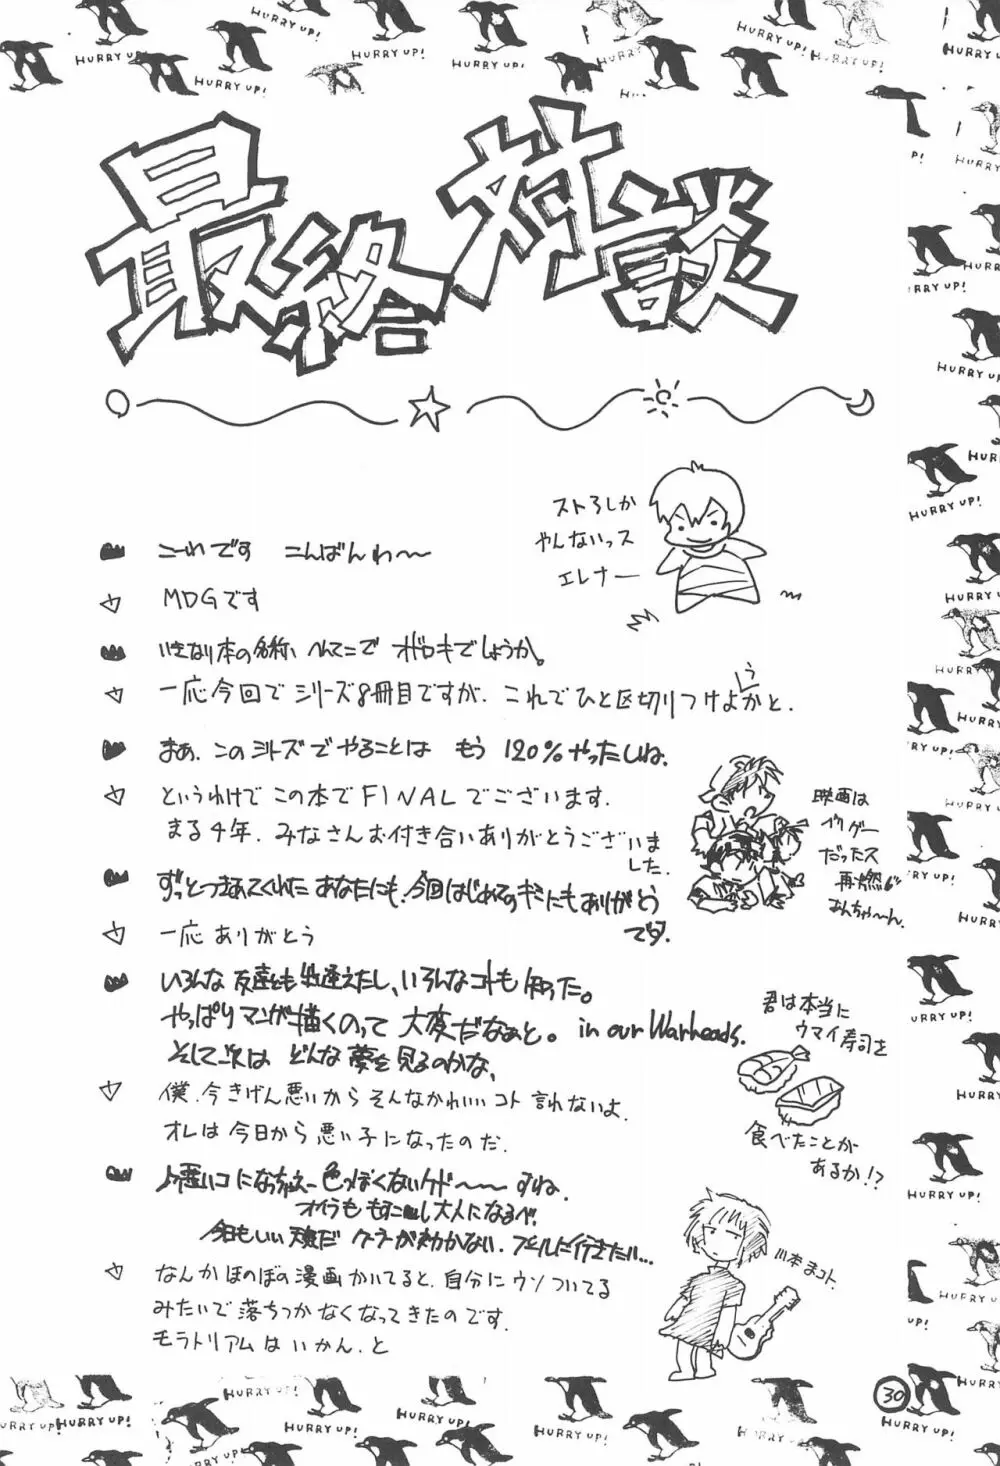 最終対談
ストろしか
やんないっス
エレナー
これです こんばんわ〜
MDGです
いきなり本の名称、へんてこで オドロキでしょうか。
一応今回で シリーズ8冊目ですが、これでひと区切りつけようかと.
まあ、このシリーズでやることは もう 120%やったしね.
というわけで この本で FINALでございます.
まる4年. みなさんお付き合いありがとうございました.
映画は
だったス
再燃
あんちゃ〜ん.
ずっとつきあってくれた あなたにも、今回はじめてのキミにもありがとう
です.
一応 ありがとう
いろんな 友達とも出逢えたし、いろんなコトも 知った。
やっぱりマンガ描くのって 大変だなぁと。 in our Warheads.
そして次は どんな夢を見るのかな、
君は本当に
ウマイ寿司を
食べたことが
あるか!?
僕、今きげん悪いから そんなかわいいコト 言れないよ.
オレは今日から悪い子になったのだ.
悪いコになっちゃえー 色っぽくないケド〜〜 すね.
オイラも もすこし大人になるべ!
今日もいい天気だ クーラーが効かない. プールに行きたい...
川本まコト.
なんかほのぼの漫画かいてると、自分にウソついてる
みたいで 落ちつかなくなってきたのです.
モラトリアムはいかん. と
30
HURRY UP!
HURRY UP!
HURRY UP!
HURRY UP!
HURRY UP!
HURRY UP!
HURRY UP!
HURRY UP!